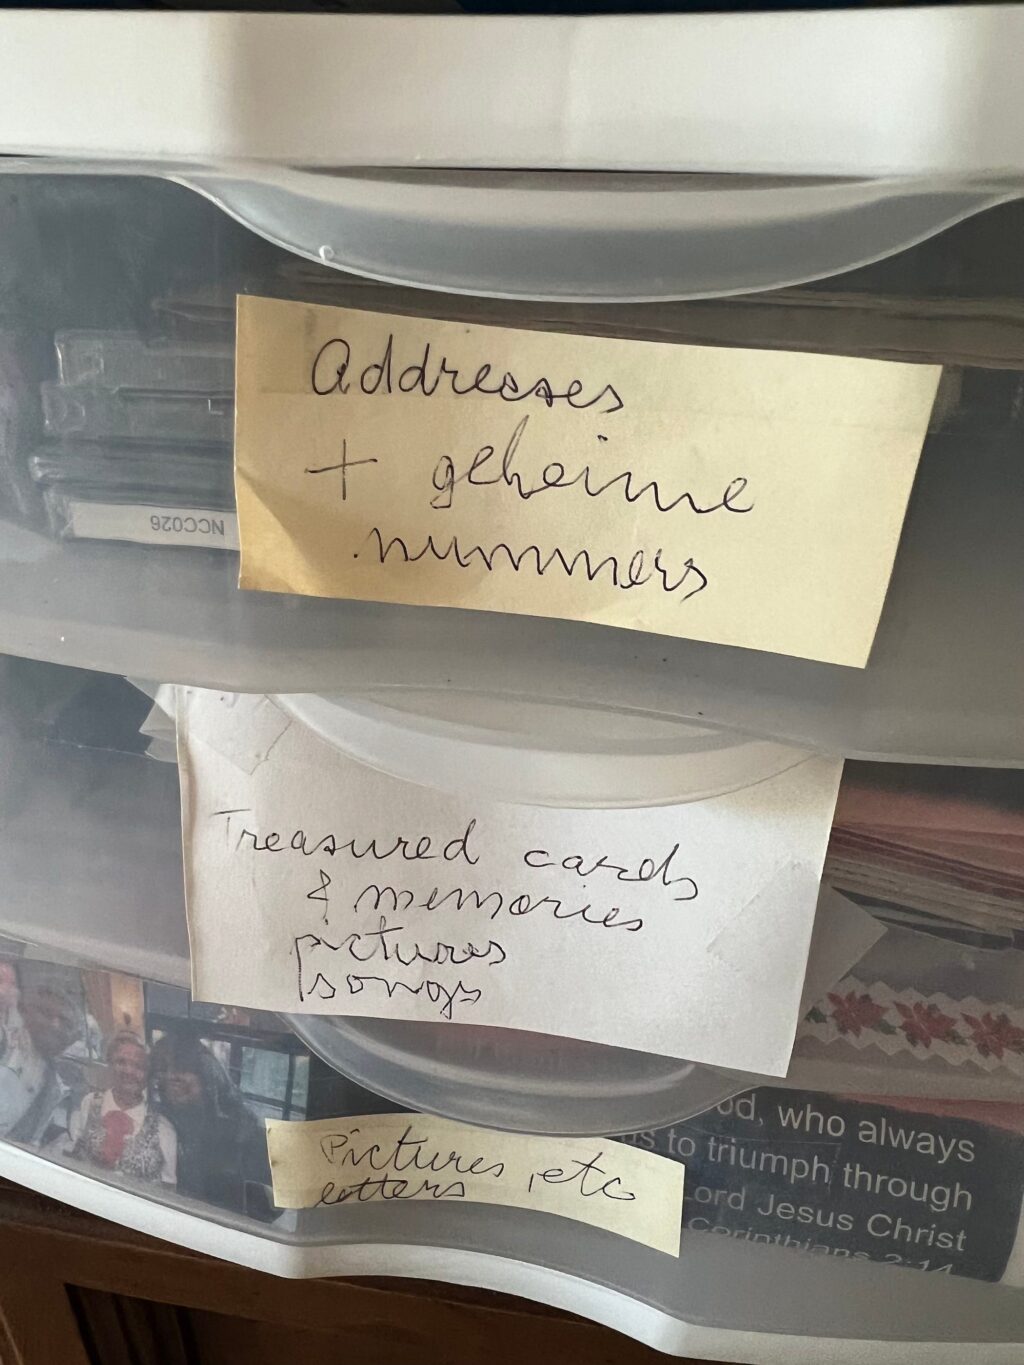 Addresses
+ geheime
nummers
NCC026
Treasured cards
& memories
pictures
songs
Pictures, etc
letters
od, who always
us to triumph through
Lord Jesus Christ
Corinthians 2:14